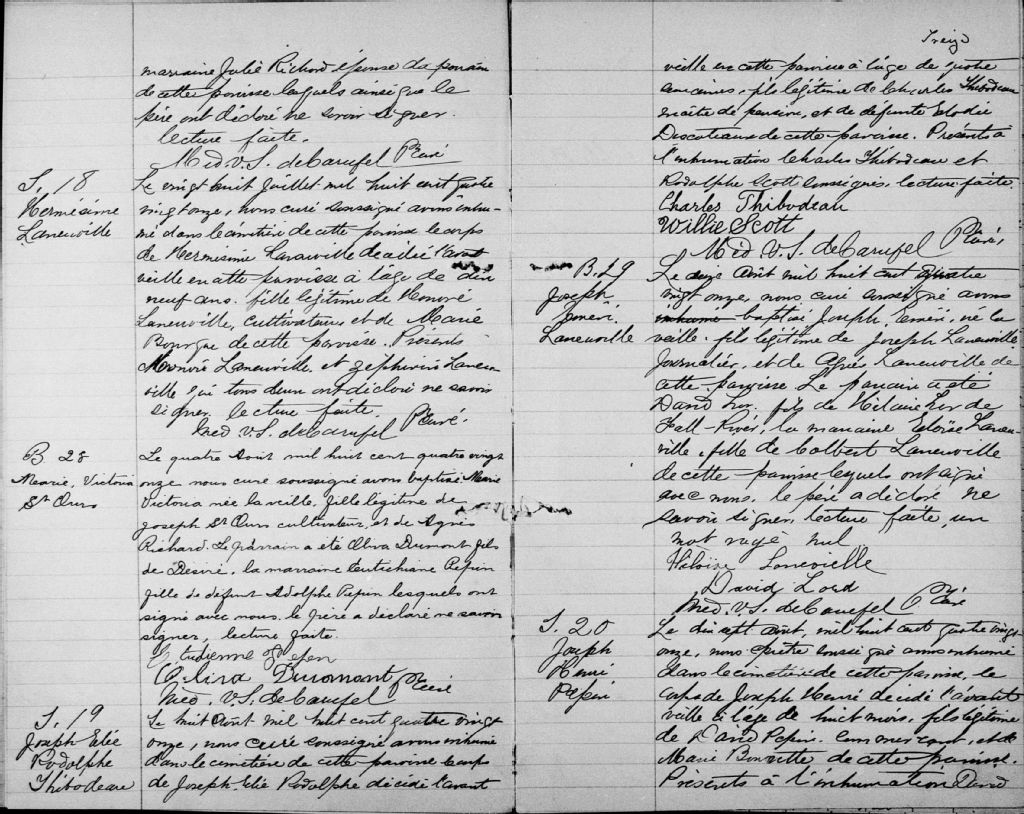 marraine Julie Richard épouse du parrain
de cette paroisse lesquels ainsi que le
père ont déclaré ne savoir signer.
lecture faite.
Méd. V. S. deCarufel Ptre Curé
S. 18
Herménime
Laneuville
Le vingt huit Juillet mil huit cent quatre
vingt onze, nous curé soussigné avons inhu-
mé dans le cimetière de cette paroisse le corps
de Laneuville décédé l'avant
veille en cette paroisse à l'âge de dix
neuf ans. fille légitime de Honoré
Laneuville, cultivateur, et de Marie
Bourque de cette paroisse. Présents
Honoré Laneuville et Zéphirin Laneu-
ville qui tous deux ont déclaré ne savoir
signer. lecture faite.
Méd. V. S. deCarufel Ptre Curé.
B 28
Marie, Victoria
St Ours
Le quatre Août mil huit cent quatre vingt
onze nous curé soussigné avons baptisé Marie
Victoria née la veille, fille légitime de
Joseph St Ours cultivateur, et de Agnès
Richard. Le parrain a été Oliva Dumont fils
de Désiré, la marraine Pepin
fille de défunt Adolphe Pepin lesquels ont
signé avec nous. le père a déclaré ne savoir
signer, lecture faite.
Dumont
Méd. V. S. deCarufel Ptre Curé
S. 19
Joseph Elie
Rodolphe
Thibodeau
Le huit Août mil huit cent quatre vingt
onze, nous curé soussigné avons inhumé
dans le cimetière de cette paroisse le corps
de Joseph Elie Rodolphe décédé l'avant
Treize
veille en cette paroisse à l'âge de quatre
semaines, fils légitime de Charles Thibodeau
maître de pension, et de défunte Elodie
Descoteaux de cette paroisse. Présents à
l'inhumation Charles Thibodeau et
Rodolphe Scott soussignés, lecture faite.
Charles Thibodeau
Willie Scott
Méd. V. S. deCarufel Ptre Curé,
B. 29
Joseph
Eméri.
Laneuville
Le Août mil huit cent quatre
vingt onze, nous curé soussigné avons
inhumé baptisé Joseph, Eméri, né la
veille, fils légitime de Joseph Laneuville
Journalier, et de Agnès Laneuville de
cette paroisse. Le parrain a été
David Lor. fils de Hilaire Lor de
Fall-River, la marraine Héloïse Laneu-
ville, fille de Colbert Laneuville
de cette paroisse lesquels ont signé
avec nous, le père a déclaré ne
savoir signer, lecture faite, un
mot rayé nul
Héloïse Laneuville
David Lord
Méd. V. S. deCarufel Ptre Curé
S. 20
Joseph
Henri
Pepin
Le dix sept Août, mil huit cent quatre vingt
onze, nous Prêtre soussigné avons inhumé
dans le cimetière de cette paroisse, le
corps de Joseph Henri décédé l'avant
veille à l'âge de huit mois, fils légitime
de David Pepin, commerçant, et de
Marie Bonville de cette paroisse.
Présents à l'inhumation David